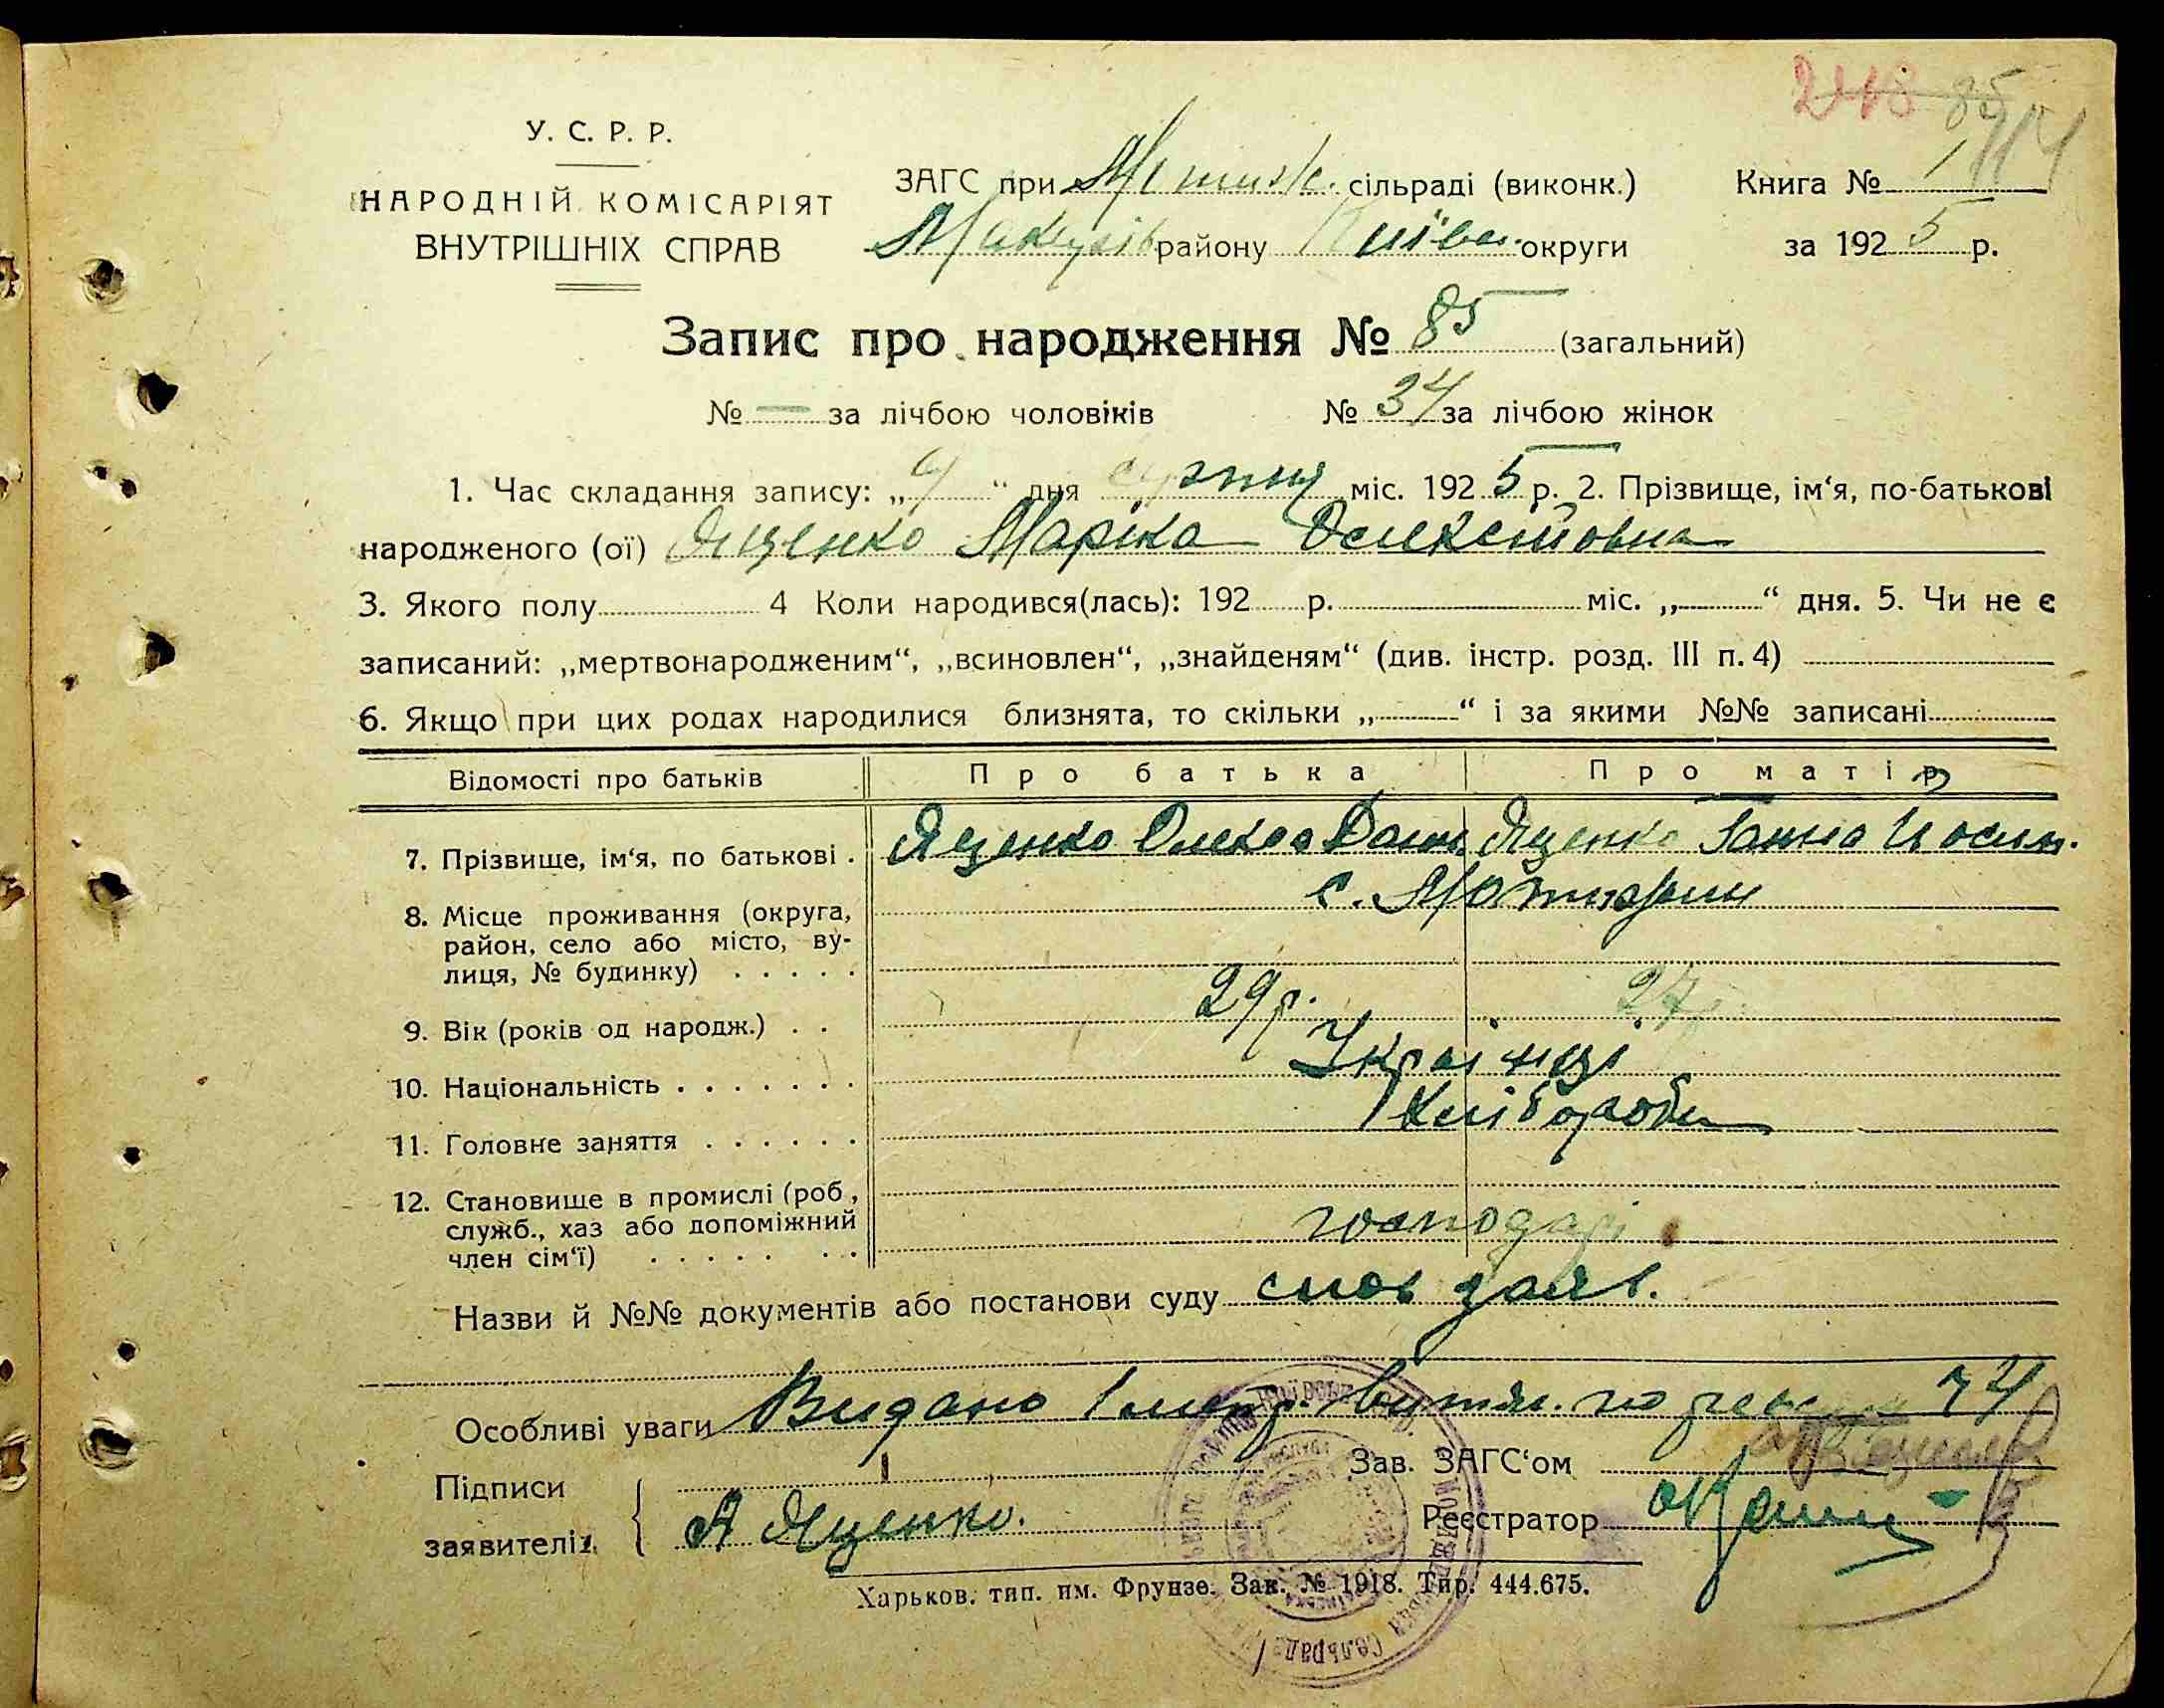 85
У. С. Р. Р.
НАРОДНІЙ КОМІСАРІЯТ
ВНУТРІШНІХ СПРАВ
ЗАГС при сільраді (виконк.)
району Київс. округи
Книга № 1
за 1925 р.
Запис про народження № 85 (загальний)
№ — за лічбою чоловіків № 34 за лічбою жінок
1. Час складання запису: „ “ дня серпня міс. 1925 р. 2. Прізвище, ім‘я, по-батькові
народженого (ої) Яценко Марика
3. Якого полу 4 Коли народився(лась): 192 р. міс. „ “ дня. 5. Чи не є
записаний: „мертвонародженим“, „всиновлен“, „знайденям“ (див. інстр. розд. III п. 4)
6. Якщо при цих родах народилися близнята, то скільки „ “ і за якими №№ записані
Відомості про батьків Про батька Про матір
7. Прізвище, ім‘я, по батькові . Яценко Олекса Дани. Яценко Ганна Йосип.
8. Місце проживання (округа, с. Мотижин
район, село або місто, ву-
лиця, № будинку) . . . . .
9. Вік (років од народж.) . . 29 р. 27
10. Національність . . . . . . . Українці
11. Головне заняття . . . . . . Хліборобы
12. Становище в промислі (роб.,
служб., хаз або допоміжний господарі
член сім‘ї) . . . . . . .
Назви й №№ документів або постанови суду слов заяв.
Особливі уваги Видано 1 метр. витяг. по 74
Підписи
заявителів
А Яценко.
Зав. ЗАГС‘ом
Реєстратор
Харьков. тип. им. Фрунзе. Зак. № 1918. Тир. 444.675.